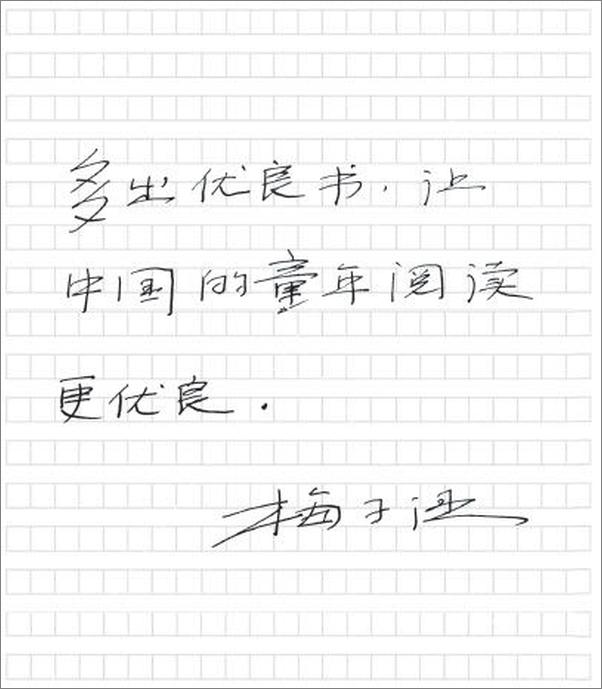 多出优良书,让
中国的童年阅读
更优良.
梅子涵